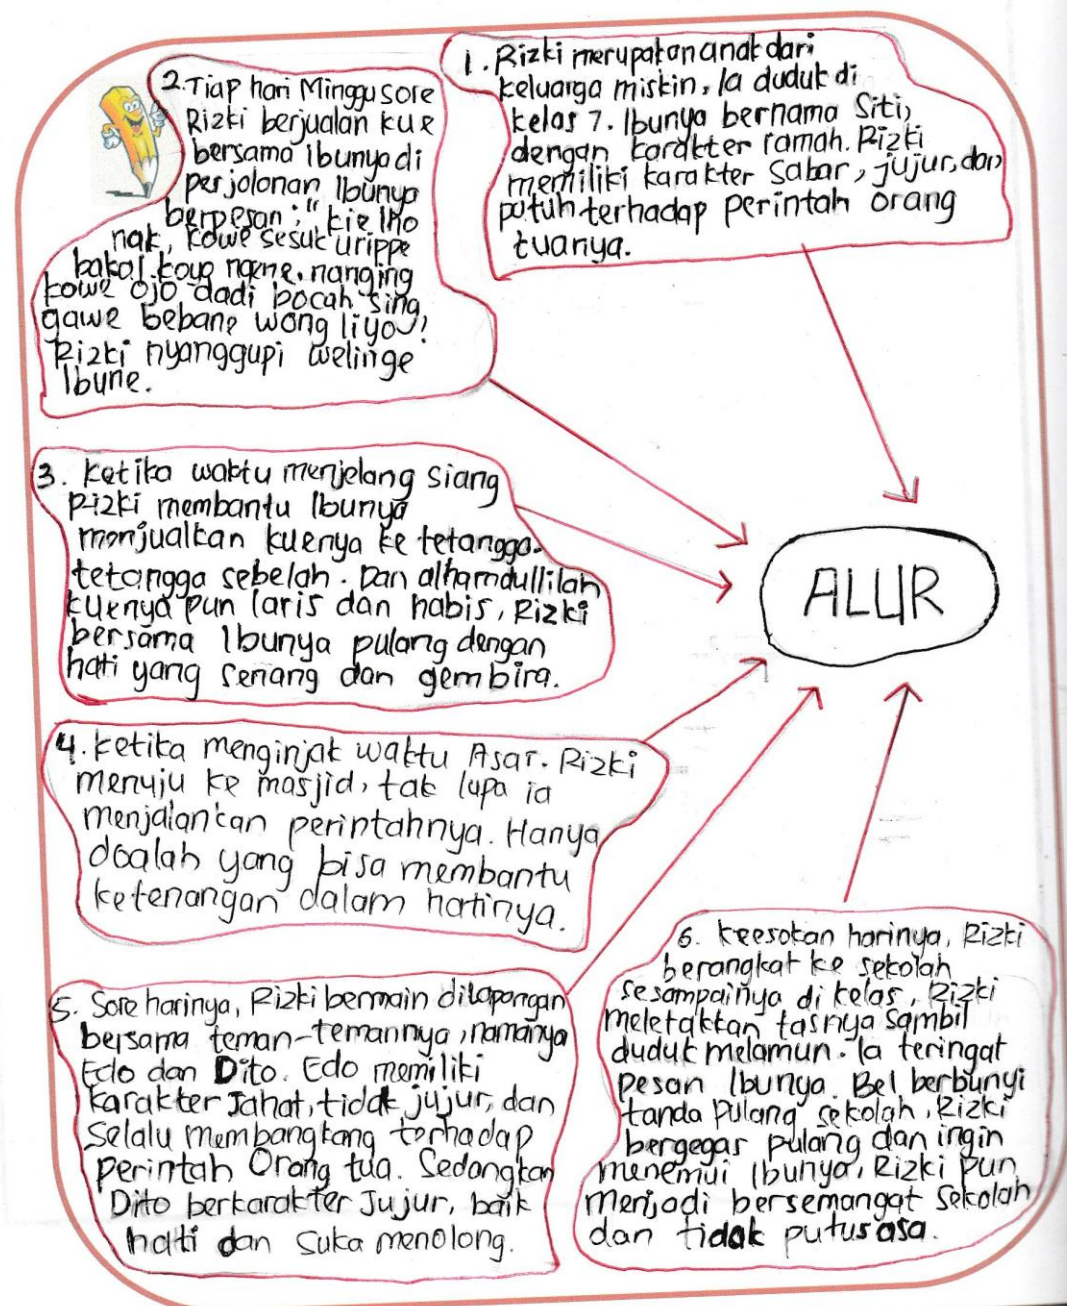 1. Rizki merupakan anak dari
keluarga miskin, Ia duduk di
kelas 7. Ibunya bernama Siti,
dengan karakter ramah. Rizki
memiliki karakter Sabar, jujur, dan
patuh terhadap perintah orang
tuanya.
2. Tiap hari Minggu sore
Rizki berjualan kue
bersama ibunya di
perjalanan Ibunya
berpesan : "kie lho
nak, kowe sesuk urippe
bakal koyo ngene, nanging
kowe ojo dadi bocah sing
gawe bebane wong liyo"!
Rizki nyanggupi welinge
Ibune.
3. Ketika waktu menjelang siang
Rizki membantu Ibunya
menjualkan kuenya ke tetangga-
tetangga sebelah. Dan alhamdullilah
kuenya pun laris dan habis, Rizki
bersama Ibunya pulang dengan
hati yang senang dan gembira.
ALUR
4. Ketika menginjak waktu Asar. Rizki
menuju ke masjid, tak lupa ia
menjalankan perintahnya. Hanya
doalah yang bisa membantu
ketenangan dalam hatinya.
5. Sore harinya, Rizki bermain dilapangan
bersama teman-temannya, namanya
Edo dan Dito. Edo memiliki
karakter Jahat, tidak jujur, dan
Selalu membangkang terhadap
perintah Orang tua. Sedangkan
Dito berkarakter Jujur, baik
hati dan Suka menolong.
6. Keesokan harinya, Rizki
berangkat ke sekolah
sesampainya di kelas, Rizki
meletakkan tasnya sambil
duduk melamun. Ia teringat
pesan Ibunya. Bel berbunyi
tanda pulang sekolah, Rizki
bergegas pulang dan ingin
menemui Ibunya, Rizki pun
menjadi bersemangat Sekolah
dan tidak putus asa.